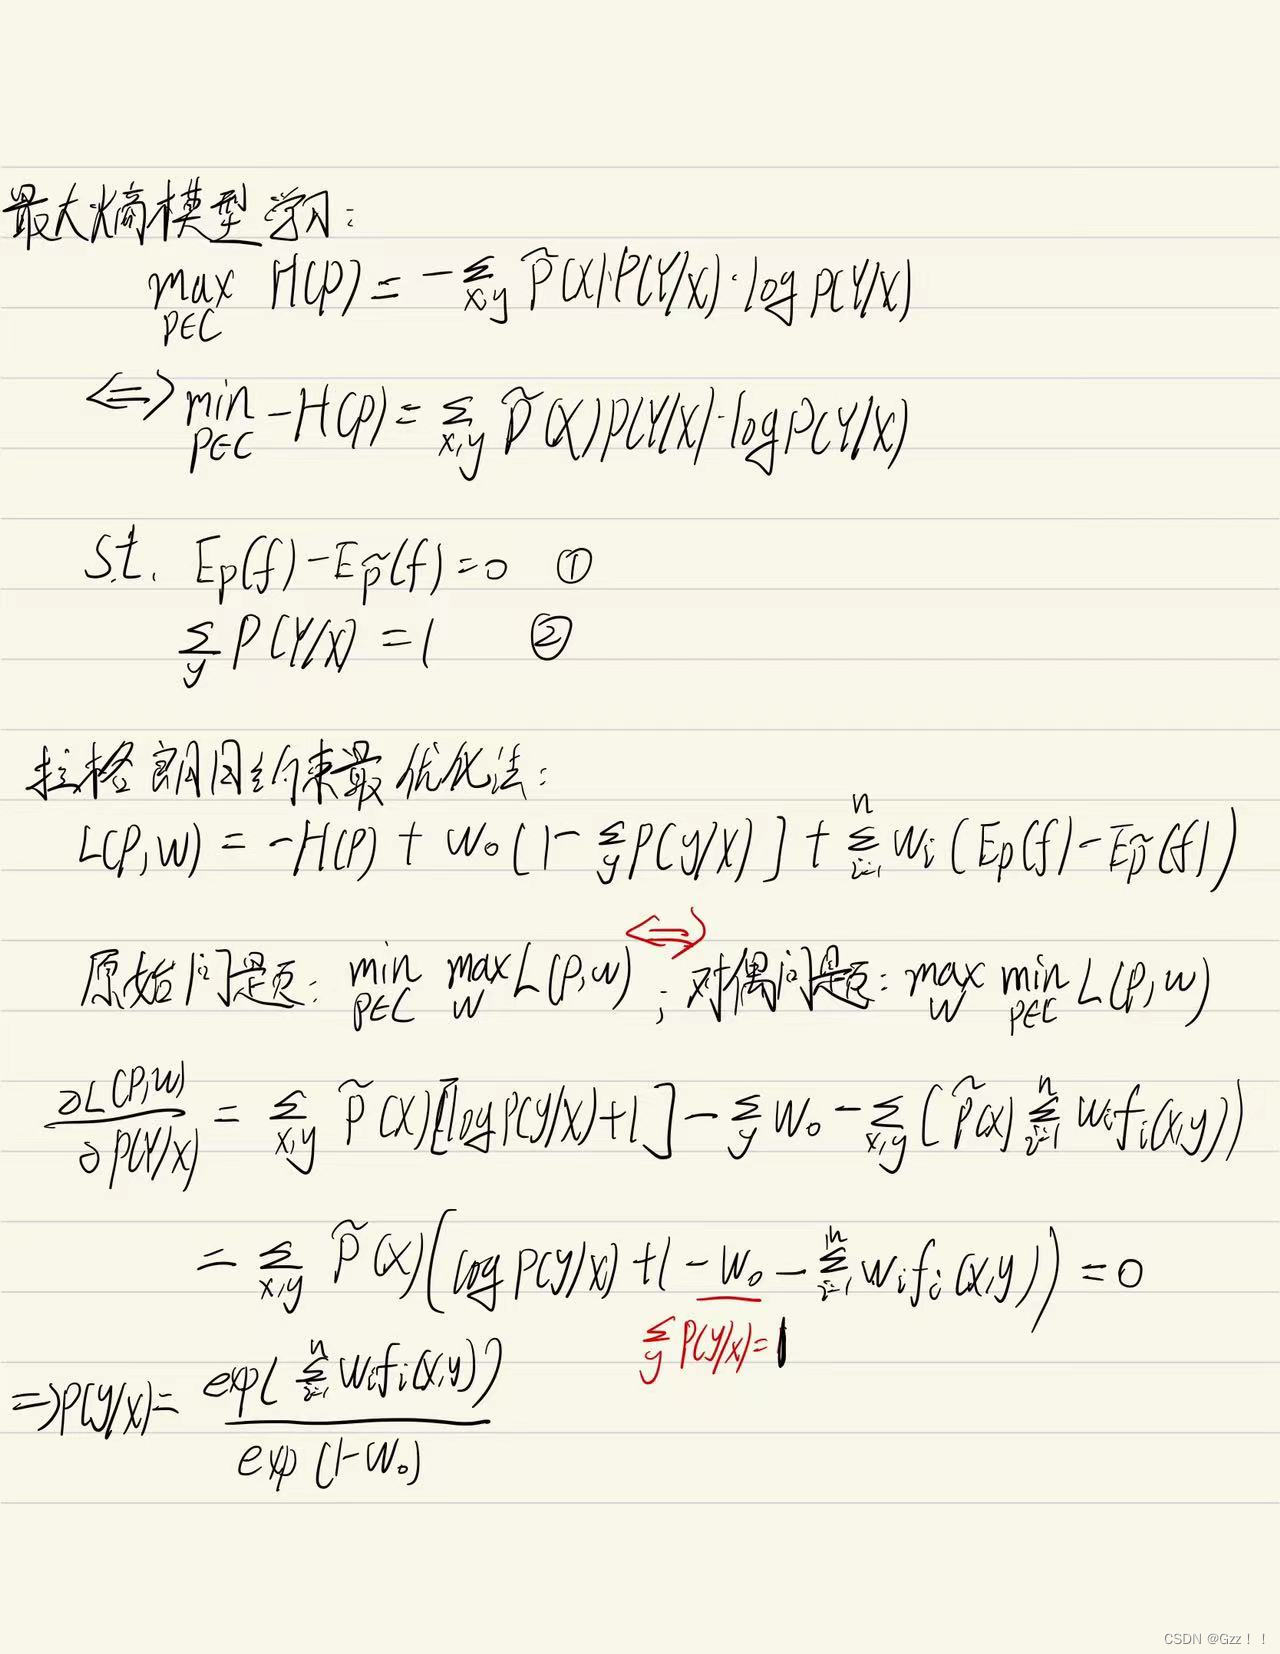 最大熵模型学习:
max P∈C H(P) = -Σx,y P̃(X)·P(Y/X)·log P(Y/X)
<=> min P∈C -H(P) = Σx,y P̃(X)P(Y/X)·log P(Y/X)
S.t. Ep(f)-Ep̃(f)=0 ①
Σy P(Y/X) = 1 ②
拉格朗日约束最优化法:
L(P,W) = -H(P) + W₀(1-Σy P(y/X)] + Σi=1 n Wi(Ep(f)-Ep̃(f))
原始问题: min P∈C max W L(P,w) <=> ; 对偶问题: max W min P∈C L(P,w)
∂L(P,W)/∂P(Y/X) = Σx,y P̃(X)[logP(y/X)+1] - Σy W₀ - Σx,y(P̃(x) Σi=1 n Wifi(x,y))
= Σx,y P̃(X)(log P(y/x)+1-W₀-Σi=1 n Wifi(x,y)) = 0
Σy P(y/x)=1
=>P(y/x)= exp(Σi=1 n Wifi(x,y))/exp(1-W₀)
CSDN @Gzz!!